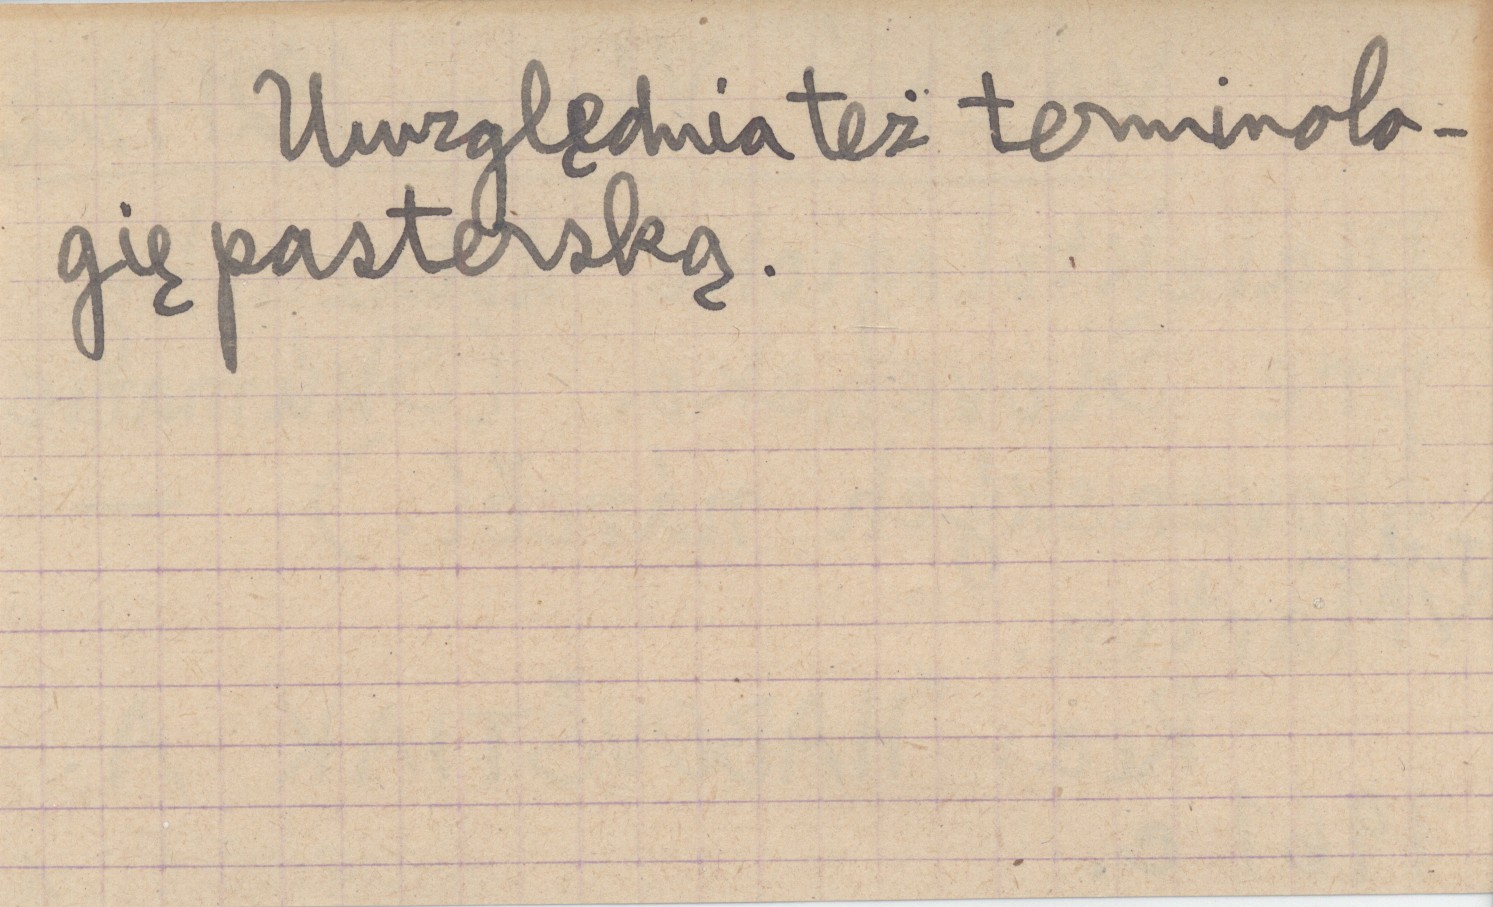 Uwzględnia też terminolo-
gię pasterską.